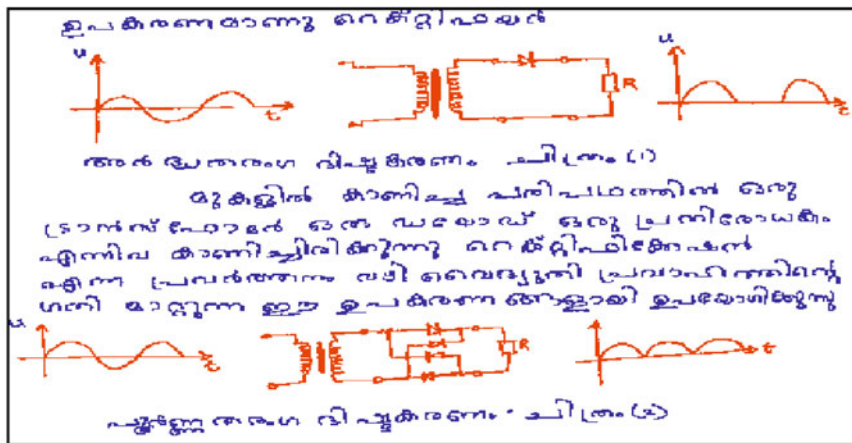 ഉപകരണമാണു റെക്റ്റിഫയർ
u
t
R
u
t
അർദ്ധതരംഗ ദിഷ്ടകരണം ചിത്രം (1)
മുകളിൽ കാണിച്ച പരിപഥത്തിൽ ഒരു
ട്രാൻസ്ഫോമർ ഒരു ഡയോഡ് ഒരു പ്രതിരോധകം
എന്നിവ കാണിച്ചിരിക്കുന്നു റെക്റ്റിഫിക്കേഷൻ
എന്ന പ്രവർത്തനം വഴി വൈദ്യുതി പ്രവാഹത്തിന്റെ
ഗതി മാറ്റുന്ന ഈ ഉപകരണങ്ങളായി ഉപയോഗിക്കുന്നു
u
t
R
t
പൂർണ്ണതരംഗ ദിഷ്ടകരണം ചിത്രം (2)